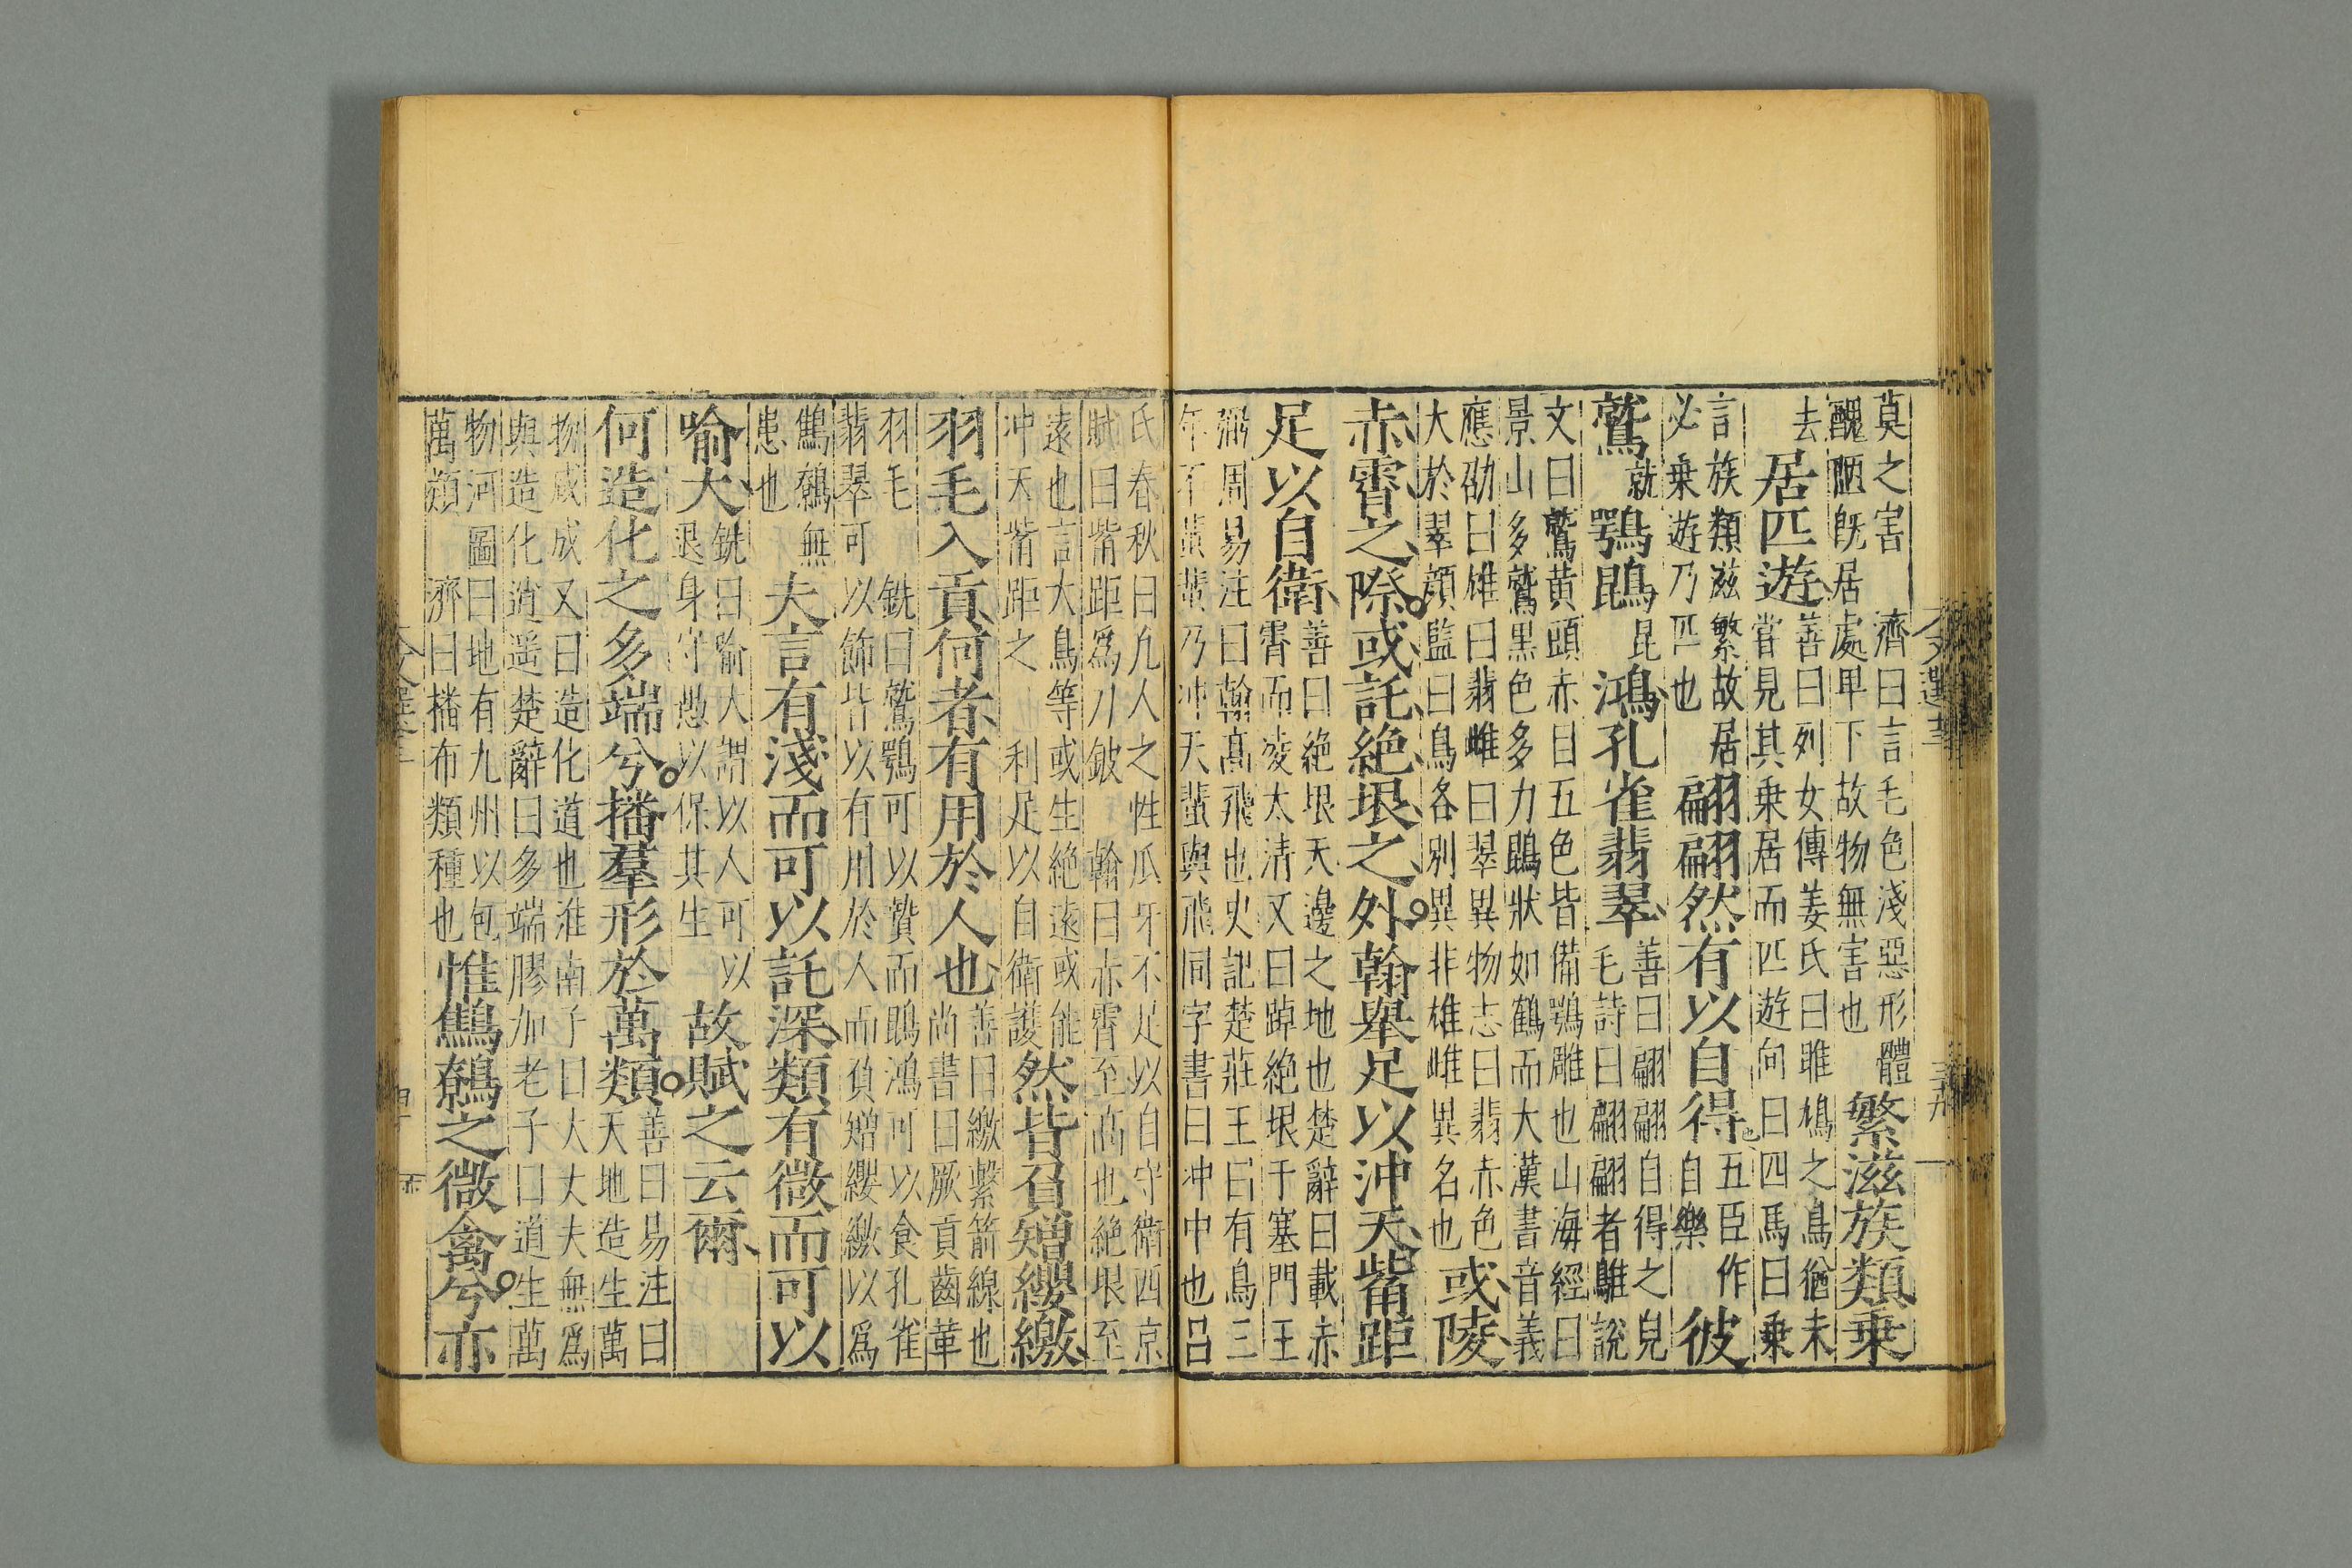 莫之害 濟曰言毛色淺惡形體
醜陋既居處卑下故物無害也
繁滋族類乗
去
居匹遊
善曰列女傳姜氏曰雎鳩之鳥猶未
甞見其乗居而匹遊向曰四馬曰乗
言族類滋繁故居
必乗遊乃匹也
翩翩然有以自得
也 五臣作
自樂
彼
鷲就鶚鵾昆鴻孔雀翡翠
善曰翩翩自得之皃
毛詩曰翩翩者鵻說
文曰鷲黄頭赤目五色皆備鶚雕也山海經曰
景山多鷲黒色多力鵾狀如鶴而大漢書音義
應劭曰雄曰翡雌曰翠異物志曰翡赤色
大於翠顔監曰鳥各别異非雄雌異名也
或陵
赤霄之際或託絶垠之外翰舉足以沖天觜距
足以自衛
善曰絶垠天邊之地也楚辭曰載赤
霄而凌太清又曰踔絶垠于塞門王
弼周易注曰翰髙飛也史記楚莊王曰有鳥三
年不蜚蜚乃沖天蜚與飛同字書曰沖中也吕
氏春秋曰凢人之性瓜牙不足以自守衛西京
賦曰觜距爲刀鈹 翰曰赤霄至髙也絶垠至
逺也言大鳥等或生絶逺或能
沖天觜距之 利足以自衛護
然皆負矰纓繳
羽毛入貢何者有用於人也
善曰繳繫箭線也
尚書曰厥貢齒革
羽毛 銑曰鷲鶚可以贄而鵾鴻可以食孔雀
翡翠可以飾皆以有用於人而負矰纓繳以爲
鷦鷯無
患也
夫言有淺而可以託深類有微而可以
喻大
銑曰喻人謂以人可以
退身守愚以保其生
故賦之云爾
何造化之多端兮播羣形於萬類
善曰易注曰
天地造生萬
物咸成又曰造化道也淮南子曰大丈夫無爲
與造化逍遥楚辭曰多端膠加老子曰道生萬
物河圖曰地有九州以包
萬類 濟曰播布類種也
惟鷦鷯之微禽兮亦